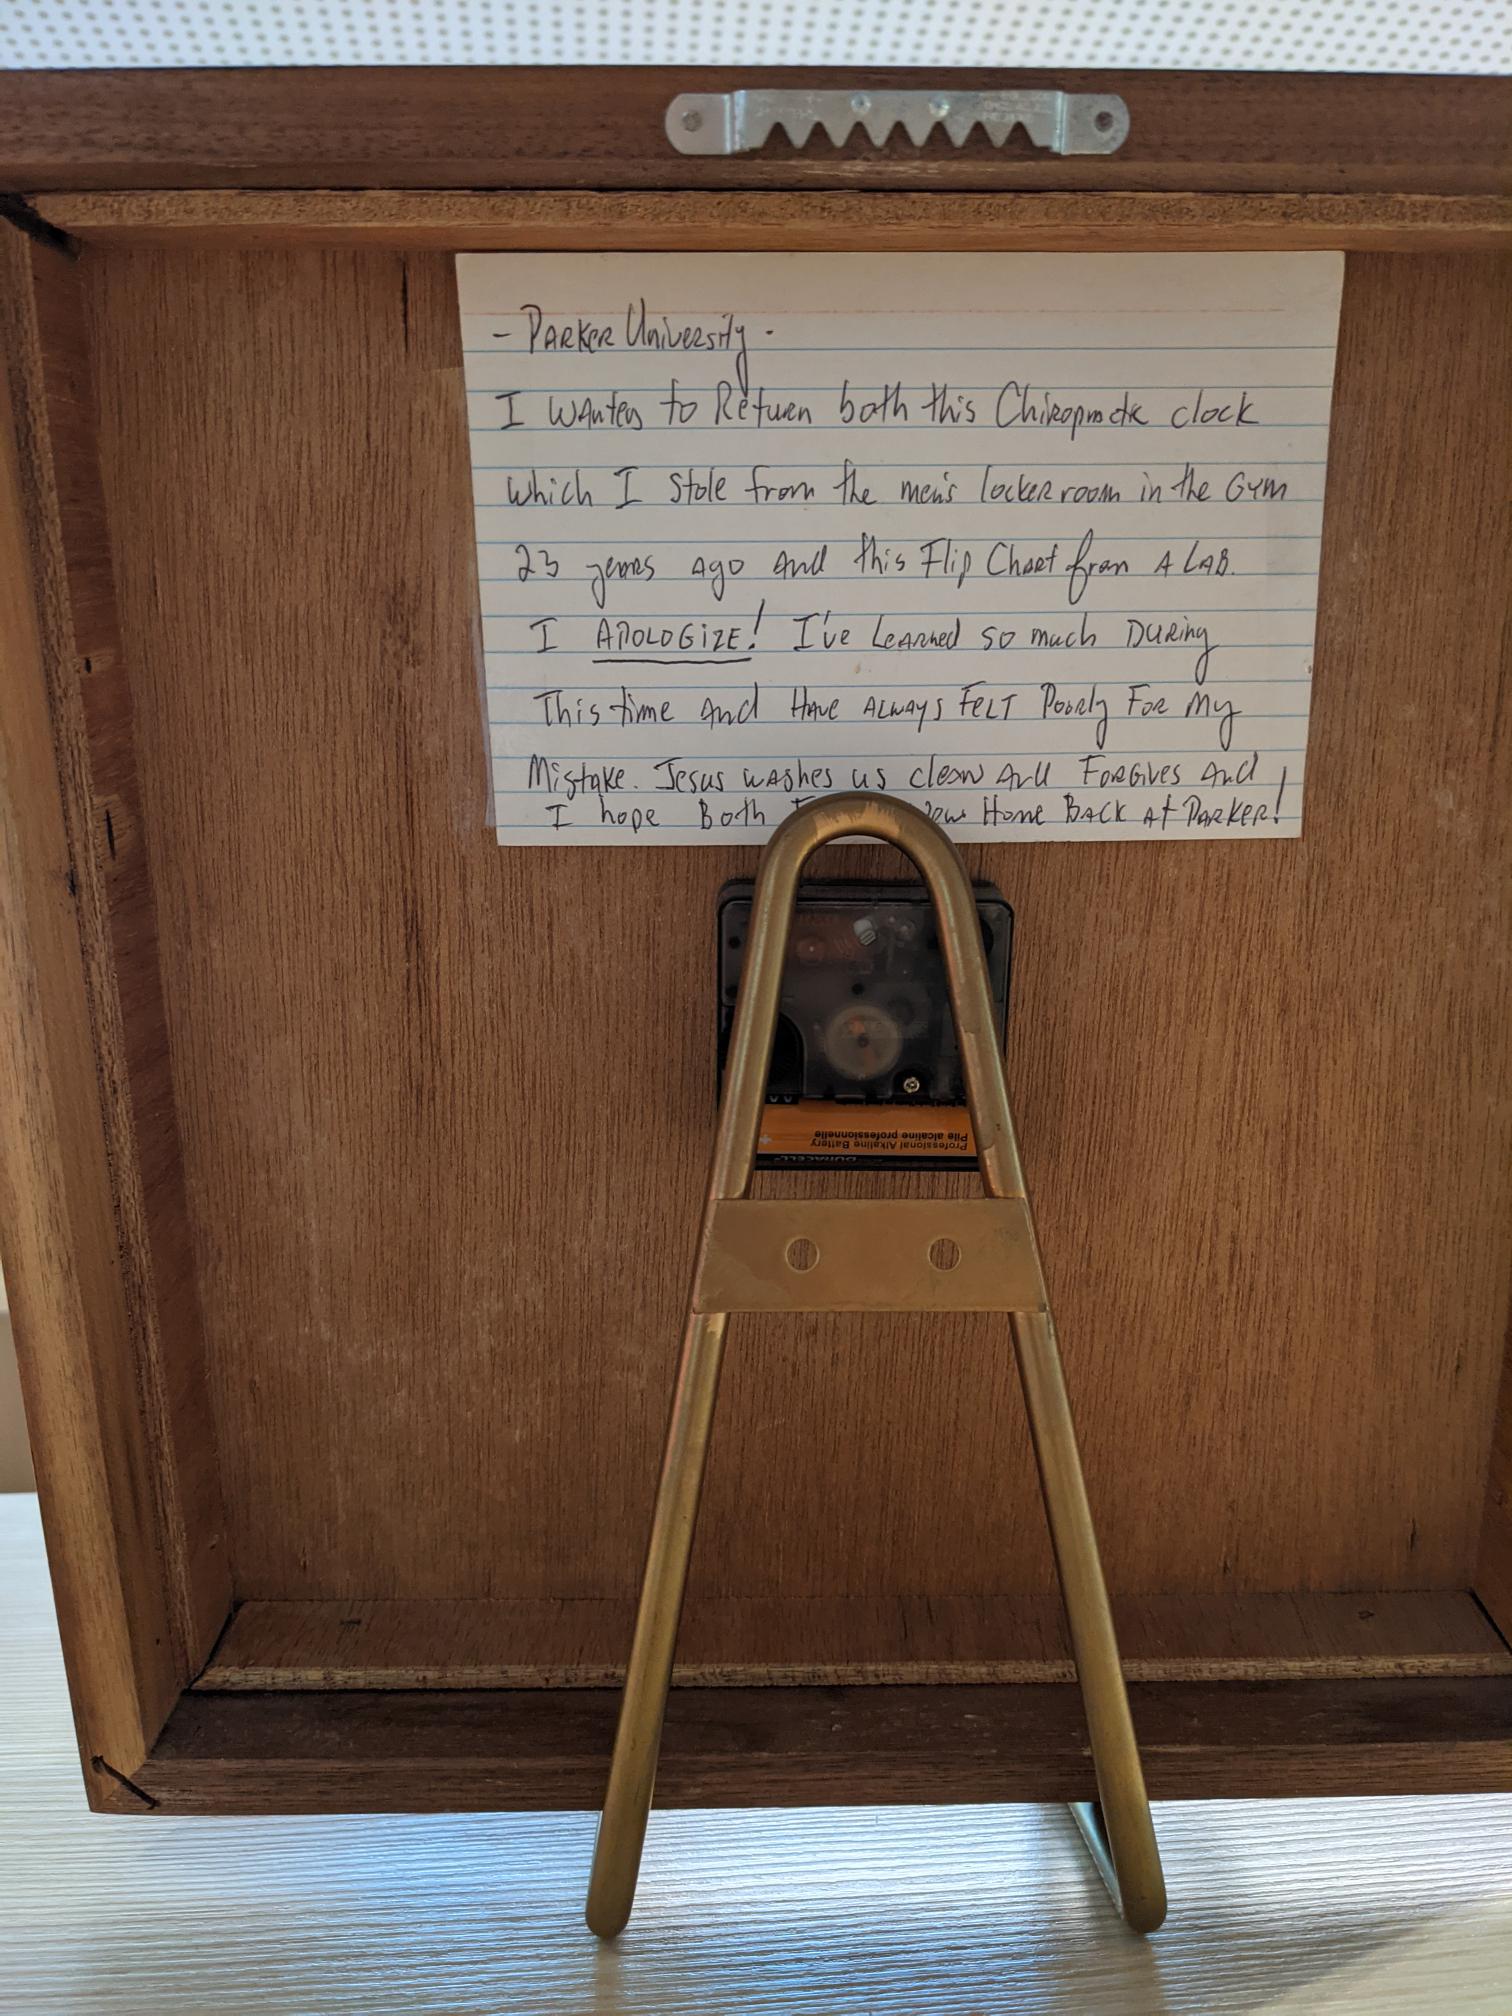 - Parker University -
I wanted to Return both this Chiropractic clock
which I stole from the men's locker room in the Gym
23 years ago and this Flip Chart from A LAB.
I APOLOGIZE! I've Learned so much During
This time and Have Always Felt Poorly For My
Mistake. Jesus washes us clean and Forgives and
I hope Both Home Back At Parker!
Professional Alkaline Battery
Pile alcaline professionnelle
DURACELL